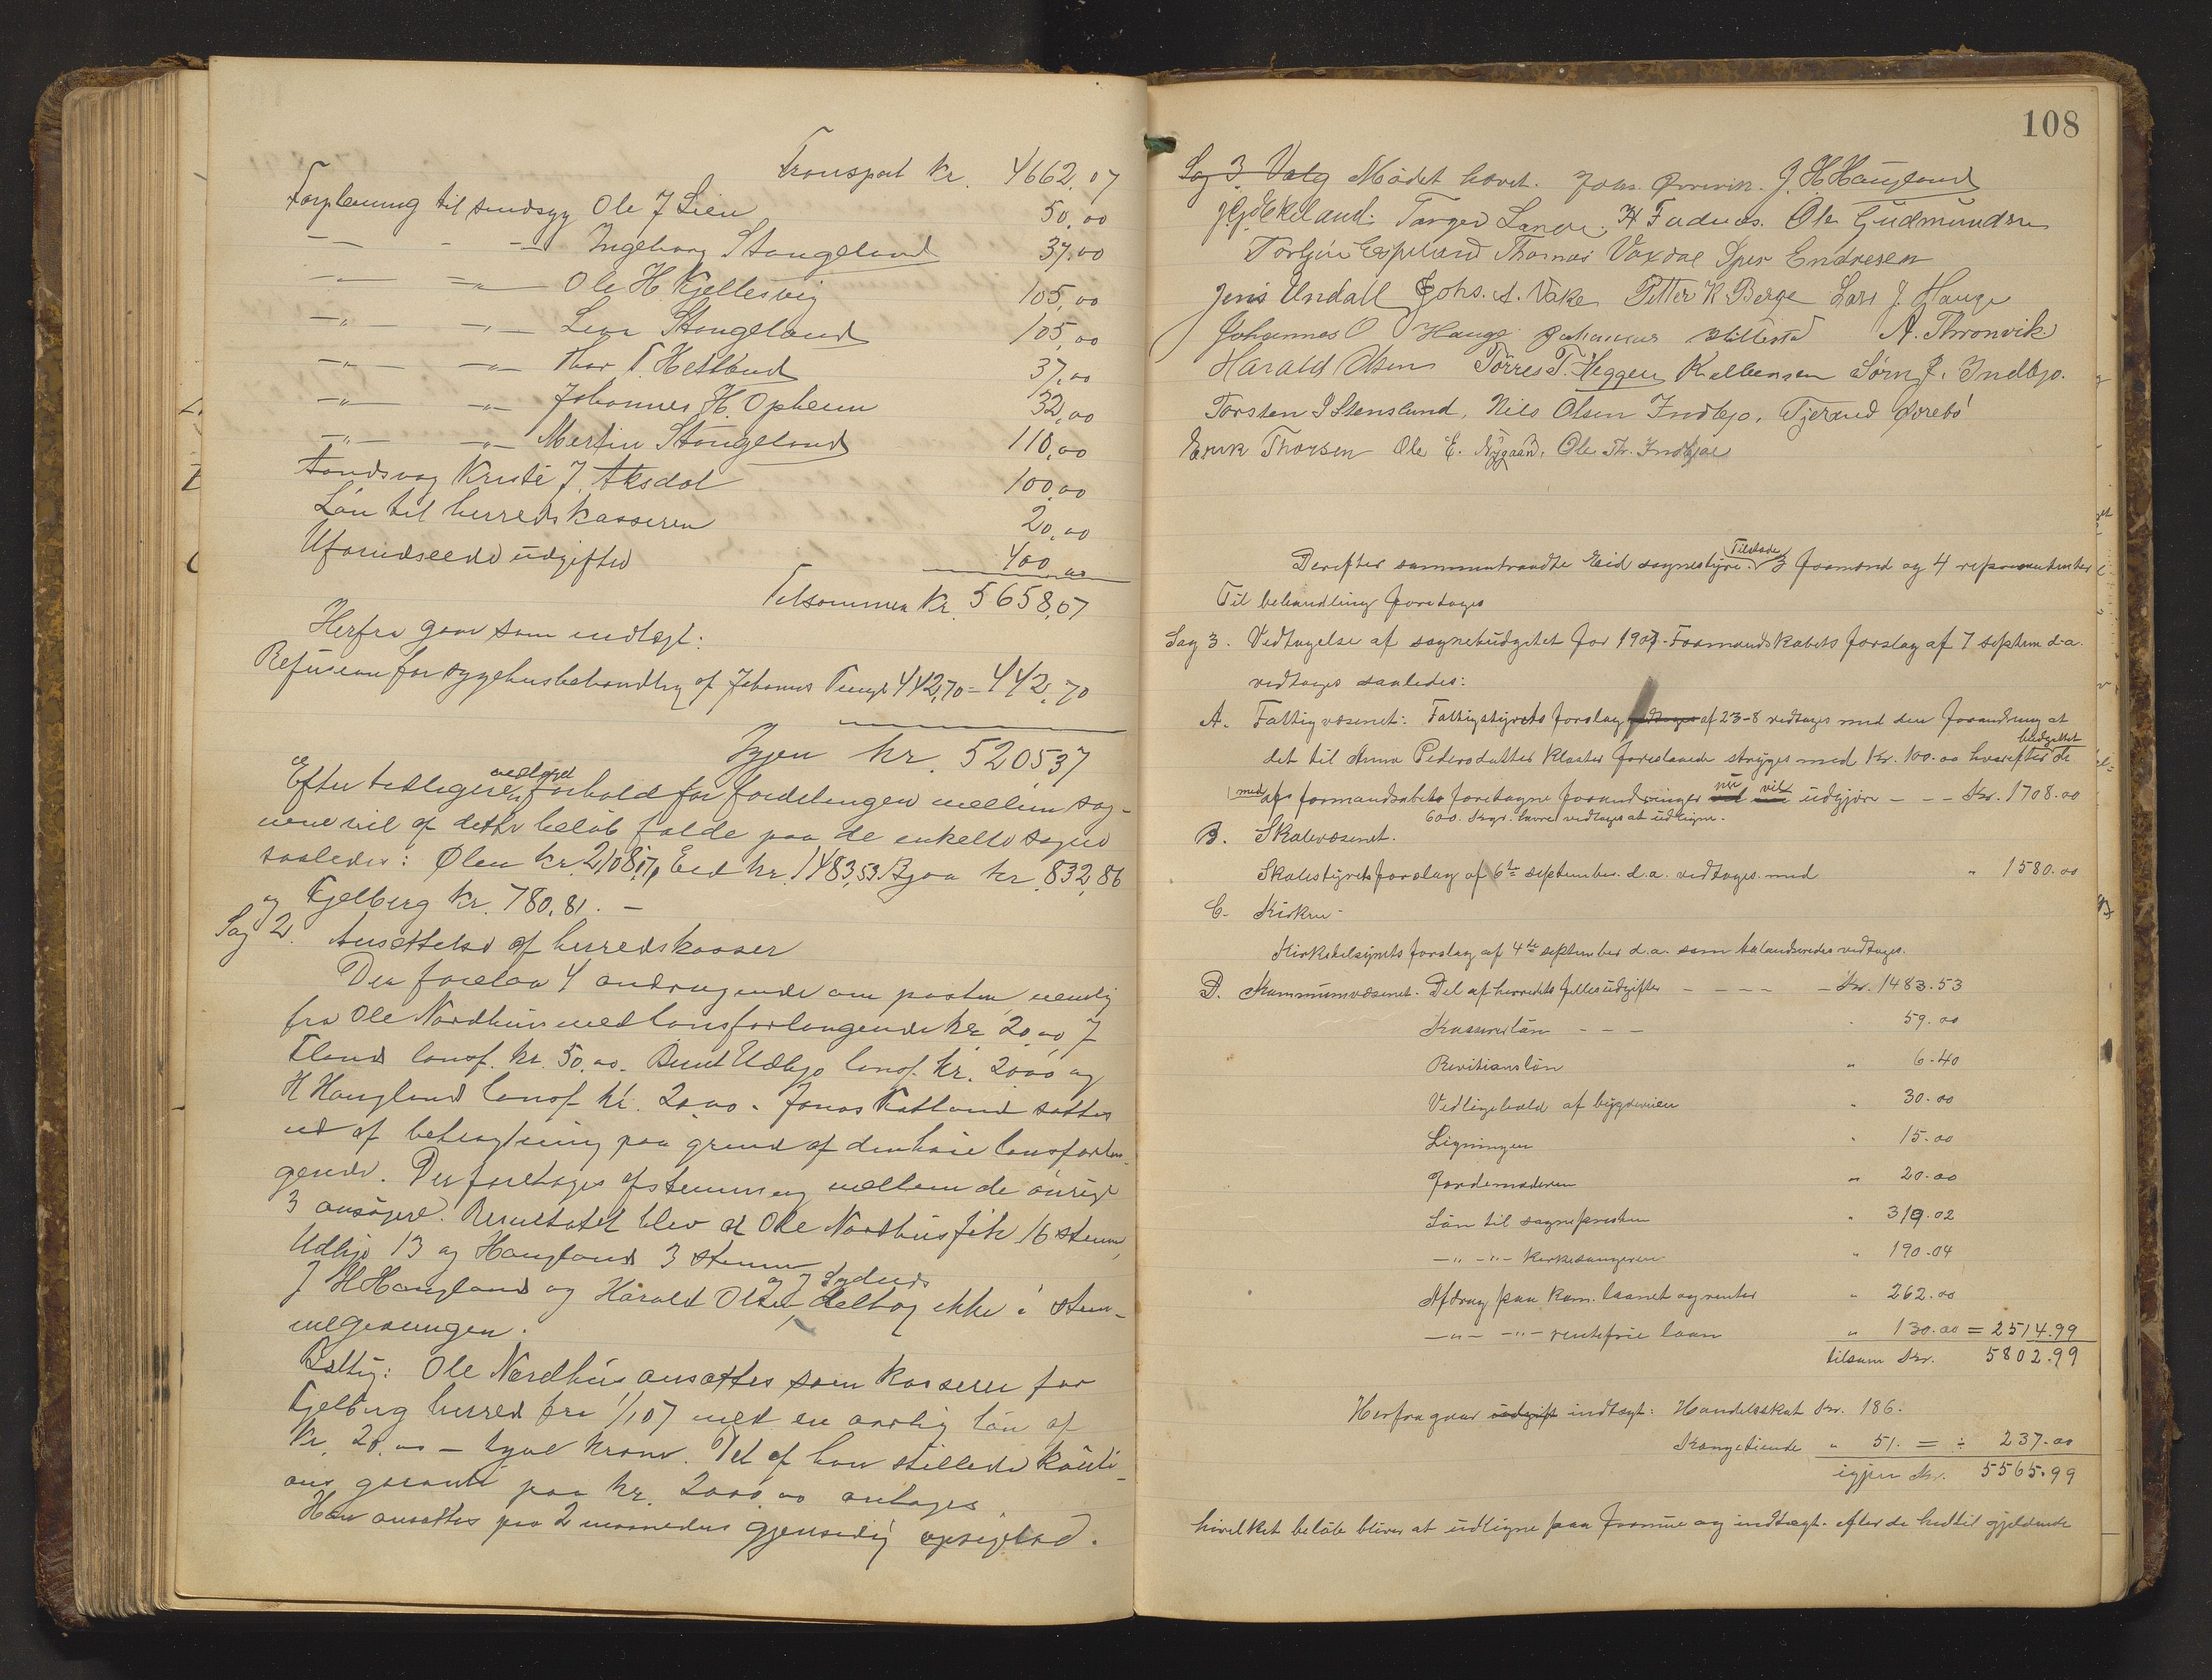 Transport Kr. 4662,07
Forpleining til sindsyg Ole J Lien 50,00
— — - — Ingeborg Stangeland 37,00
— „ — „ — Ole H. Kjellesvig 105,00
— „ — — „ — Lina Stangeland 105,00
— „ — — „ — Thor T. Hetland 37,00
— „ — — „ — Johannes H. Opheim 32,00
— „ — — „ — Martin Stangeland 110,00
Aandsvag Kristi J. Aksdal 100,00
Løn til herredskasseren 20,00
Uforudseede udgifter 400,00
Tilsammen Kr. 5658,07
Herfra gaar som indtægt:
Refusion for sygehusbehandling af Johannes 442,70 = 442,70
Igjen kr. 5205,37
Efter tidligere vedtaget forhold for fordelingen mellem sog-
nene vil af dette beløb falde paa de enkelte sogne
saaledes: Ølen kr. 2108,17, Eid kr. 1483,53. Bjoa kr. 832,86
og Fjelberg kr. 780,81. —
Sag 2. Ansættelse af herredskasser
Der forelaa 4 andragende om posten, nemlig
fra Ole Nordhus med lønsforlangende kr. 20,00, J
Fland lønsf. kr. 50,00. Bernt Udbjo lønsf. kr. 20,00 og
H Haugland lønsf. kr. 20,00. Jonas sattes
ud af betragtning paa grund af den høie lønsforlan-
gende. Der foretoges afstemning mellem de øvrige
3 ansøgere. Resultatet blev at Ole Nordhus fik 16 stemm,
Udbjo 13 og Haugland 3 stemm
og J
J H Haugland og Harald Olsen deltog ikke i stem-
megivningen.
Vedtag: Ole Nordhus ansættes som kasserer for
Fjelberg herred fra 1/1 07 med en aarlig løn af
Kr. 20,00 — tyve kroner. Det af ham stillede kauti-
ons garanti paa kr. 2000,00 antages
Han ansættes paa 2 maaneders gjensidig opsigelse.
108
Sag 3. Valg Mødet hævet. Johs. Ørrevik. J. H. Haugland
J. G. Ekeland. Torger Lande. H Fadnes. Ole Gudmundsen
Torbjørn Espeland Thomas Vaxdal Sjur Endresen
Jens Undall Johs. A. Vake Petter K Berge Lars J. Hauge
Johannes O Hauge Johannes A. Thronvik
Harald Olsen Tørres T. Heggen K Søren J. Indbjo.
Torsten I Stensland, Nils Olsen Indbjo, Tjerand Øvrebø
Erik Thorsen Ole E. Nygaard, Ole Th. Indbjoe
Derefter sammentraadte Eid sognestyre. Tilstede 3 formænd og 4 repræsentanter
Til behandling foretoges
Sag 3. Vedtagelse af sognebudgetet for 1907. Formandskabets forslag af 7 septem d.a.
vedtoges saaledes:
A. Fattigvæsenet: Fattigstyrets forslag vedtoges af 23-8 vedtages med den forandring at
det til Anna Pedersdatter Kloster foreslaaede stryges med Kr. 100.00 hvorefter de budgettet
med af formandsabets foretagne forandringer nu vil udgjøre - - - Kr. 1708.00
600. kgr. havre vedtages at udligne.
B. Skolevæsenet.
Skolestyrets forslag af 6te september d.a. vedtages med " 1580.00
C. Kirken -
Kirketilsynets forslag af 4de september d.a. som balanseredes vedtages.
D. Kommunevæsenet. Del af herredets fellesudgifter - - - - - Kr. 1483.53
Kassererløn - - - 59.00
Revisionsløn " 6.40
Vedligehold af bygdeveien " 30.00
Ligningen " 15.00
Jordemoderen " 20.00
Løn til sognepresten " 319.02
— „ — „ — Kirkesangeren " 190.04
Afdrag paa Kom. laanet og renter " 262.00
— „ — — „ — rentefrie laan " 130.00 = 2514.99
tilsam Kr. 5802.99
Herfra gaar udgift indtægt: Handelsskat Kr. 186.
Kongetiende " 51. = ÷ 237.00
igjen Kr. 5565.99
hvilket beløb bliver at udligne paa formue og indtægt. efter de hidtil gjeldende